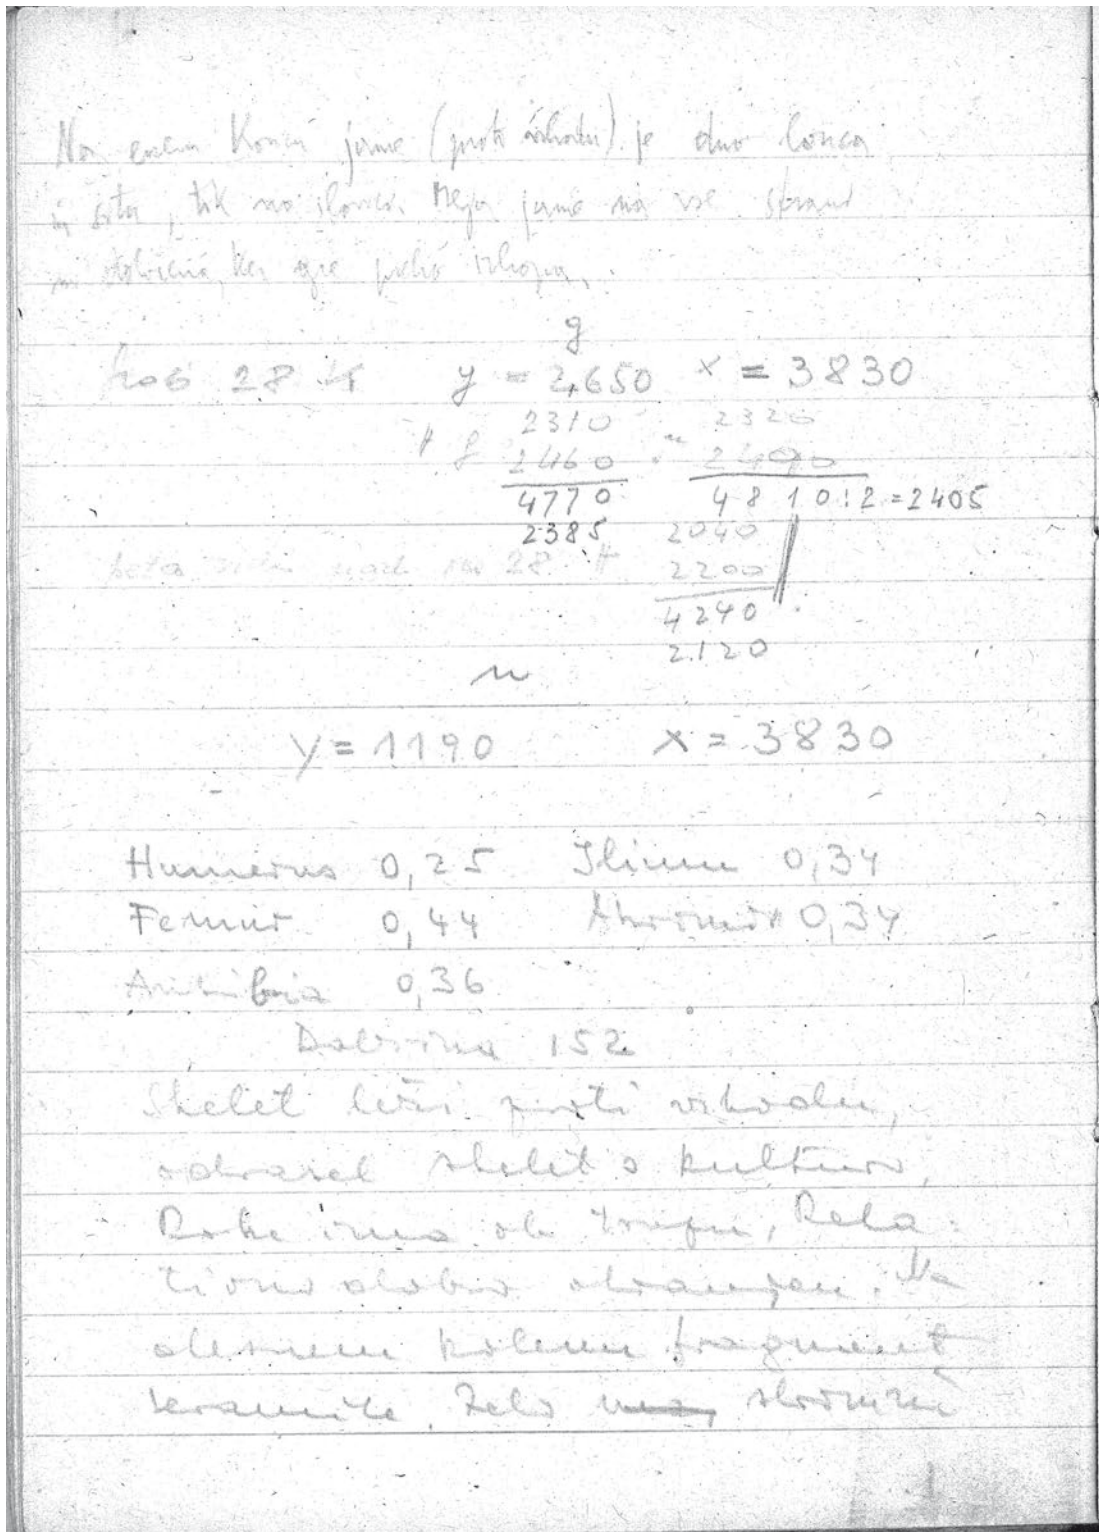 Na enem koncu jame (proti vzhodu) je dno lonca
in , tik na . Meja jame na vse strani
ni določena, ker gre preko
g
Grob 28 y = 2,650 x = 3830
2310 2320
g 2460 2490
4770 4810:2=2405
2385 2040
peta na 28 2200
4240
2120
n
y = 1190 x = 3830
Humerus 0,25 Ilium 0,34
Femur 0,44 0,34
0,36
Dolžina 152
Skelet leži proti vzhodu,
odrasel skelet s kulturo,
Roke ima ob trupu, Rela-
tivno dobro ohranjen. Na
desnem kolenu fragment
keramike. Zelo skromni